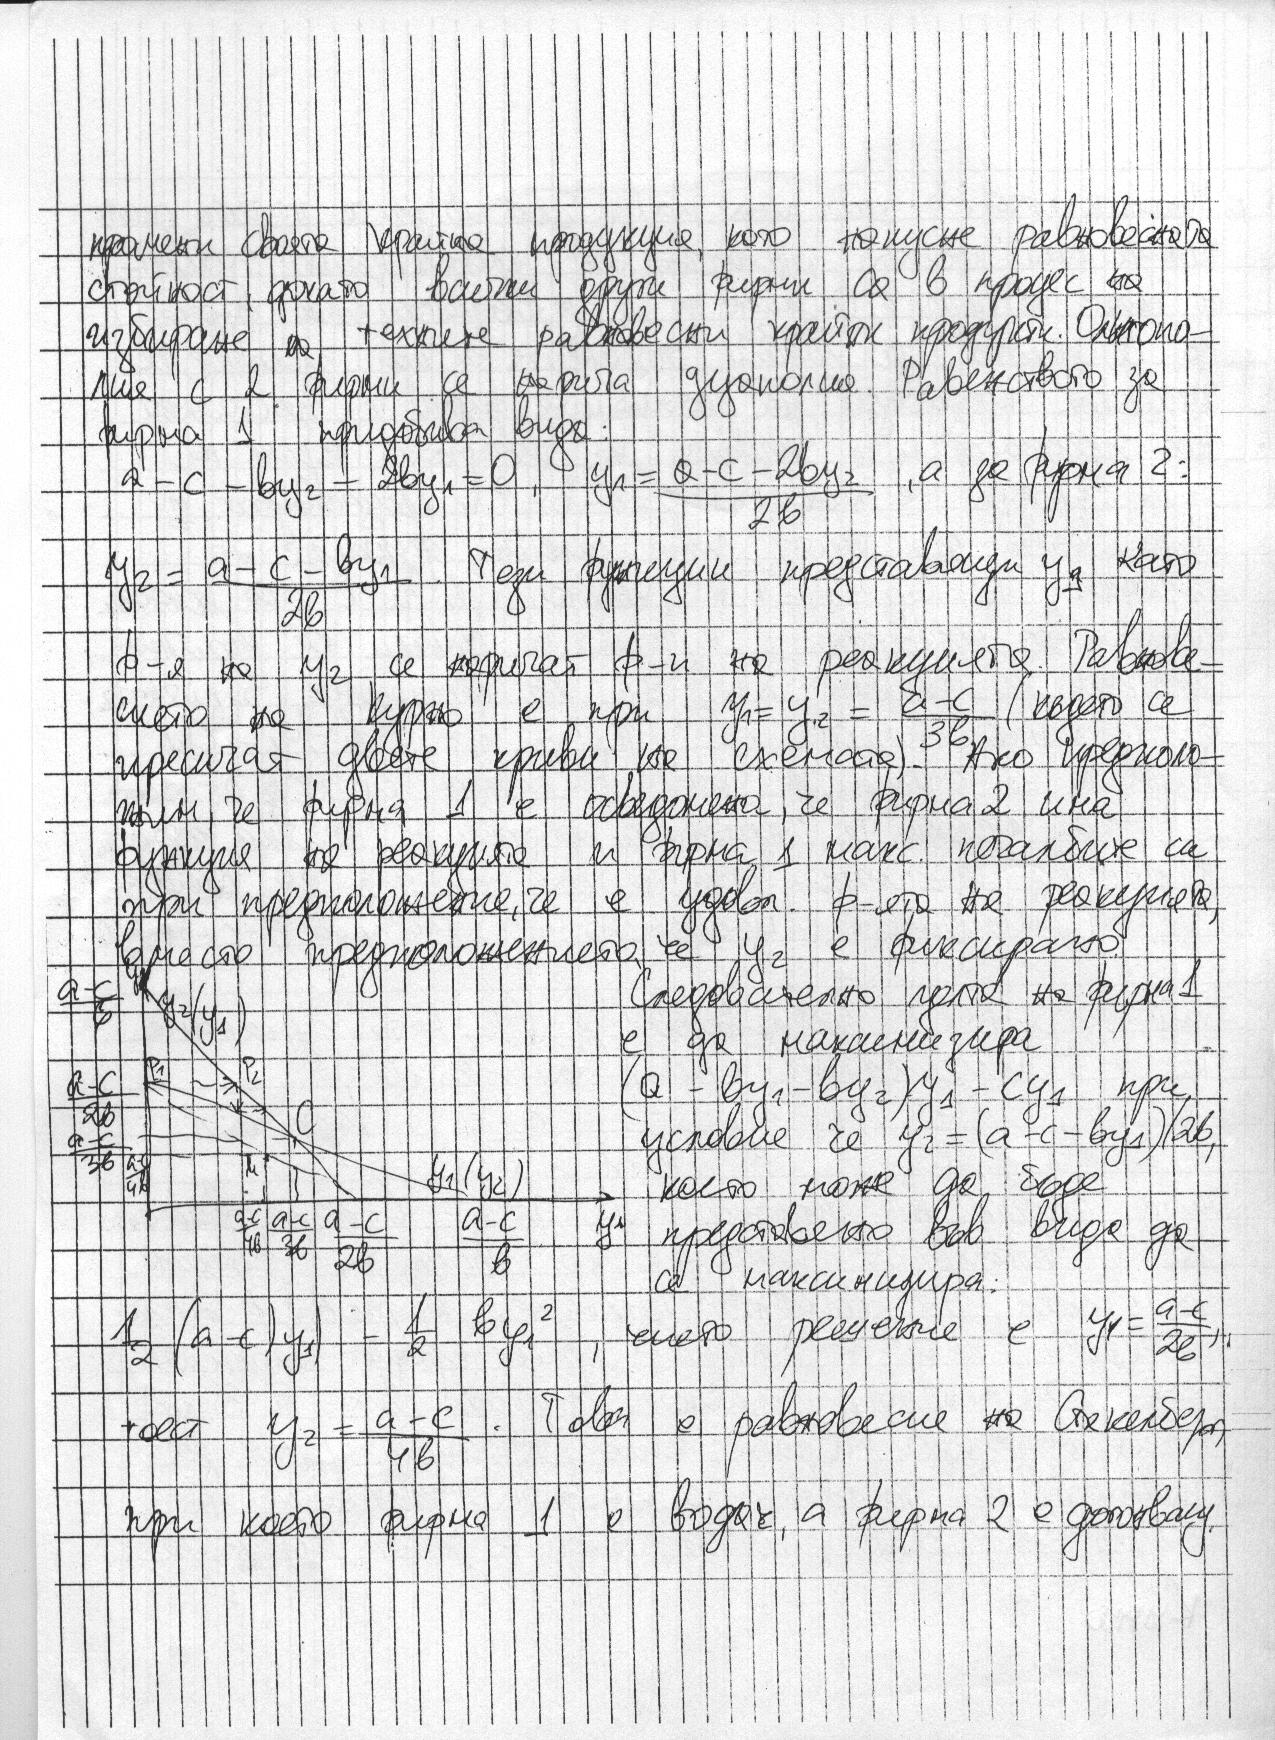 промени своята крайна продукция, като напусне равновесната
стойност, докато всички други фирми са в процес на
избиране на техните равновесни крайни продукти. Олигопо-
лия с 2 фирми се нарича дуополия. Равенството за
фирма 1 придобива вида:
a-c-by₂-2by₁=0, y₁=(a-c-2by₂)/2b, а за фирма 2:
y₂=(a-c-by₁)/2b. Тези функции представящи y₁ като
ф-я на y₂ се наричат ф-и на реакцията. Равнове-
сието на Курно е при y₁=y₂=(a-c)/3b (където се
пресичат двете криви на схемата). Ако предполо-
жим, че фирма 1 е осведомена, че фирма 2 има
функция на реакцията и фирма 1 макс. печалбите си
при предположение, че е удовл. ф-ята на реакцията,
вместо предположението, че y₂ е фиксирано.
Следователно целта на фирма 1
е да максимизира
(a-by₁-by₂)y₁-cy₁ при
условие че y₂=(a-c-by₁)/2b,
което може да бъде
представено във вида да
се максимизира:
(a-c)/b
y₂(y₁)
(a-c)/2b
P₁ P₂
C
(a-c)/3b
(a-c)/4b
y₁(y₂)
(a-c)/4b (a-c)/3b (a-c)/2b (a-c)/b y₁
1/2 (a-c)y₁) - 1/2 by₁², чието решение е y₁=(a-c)/2b,
тоест y₂=(a-c)/4b. Това е равновесие на Стакелберг,
при което фирма 1 е водач, а фирма 2 е догонващ.